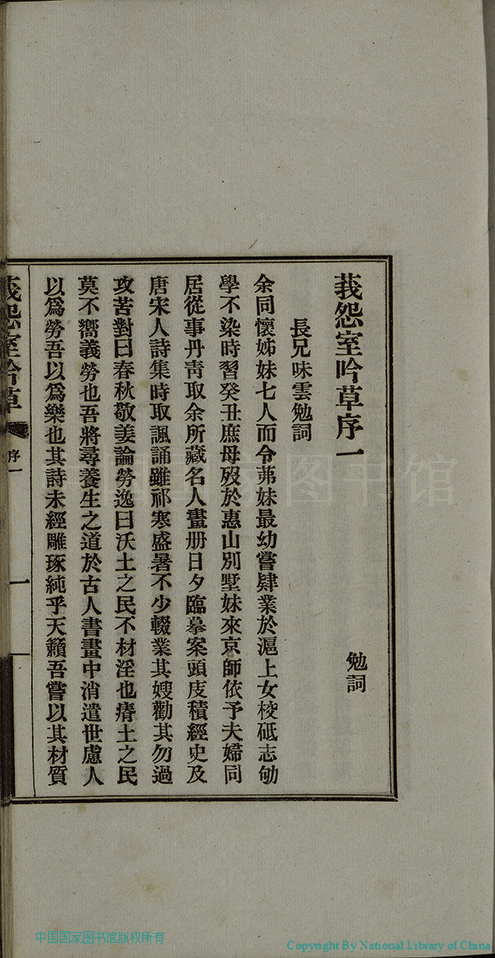 莪怨室吟草序一
勉詞
長兄味雲勉詞
余同懷姊妹七人而令茀妹最幼嘗肄業於滬上女校砥志劬
學不染時習癸丑庶母歿於惠山別墅妹來京師依予夫婦同
居從事丹靑取余所藏名人畫册日夕臨摹案頭庋積經史及
唐宋人詩集時取諷誦雖祁寒盛暑不少輟業其嫂勸其勿過
攻苦對曰春秋敬姜論勞逸曰沃土之民不材淫也瘠土之民
莫不嚮義勞也吾將尋養生之道於古人書畫中消遣世慮人
以爲勞吾以爲樂也其詩未經雕琢純乎天籟吾嘗以其材質
莪怨室吟草
序一
一
中国国家图书馆版权所有
Copyright By National Library of China